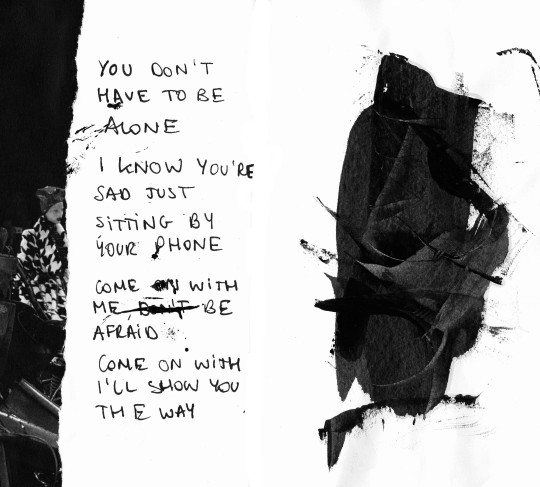 YOU DON'T
HAVE TO BE
ALONE
I KNOW YOU'RE
SAD JUST
SITTING BY
YOUR PHONE
COME ON WITH
ME, DON'T BE
AFRAID
COME ON WITH
I'LL SHOW YOU
THE WAY